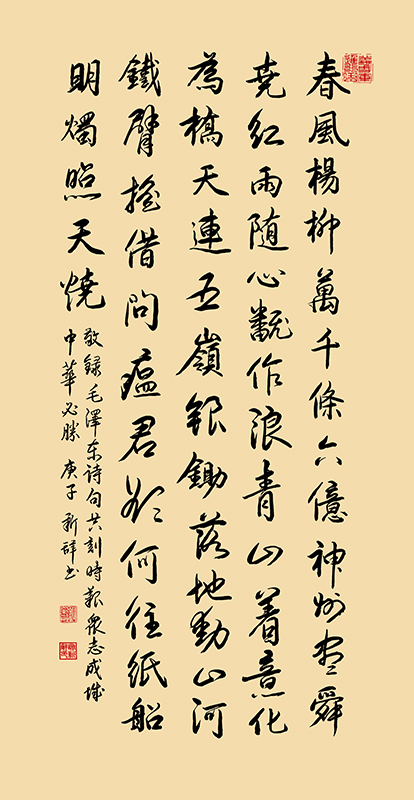 春風楊柳萬千條六億神州盡舜
尭紅雨随心飜作浪青山着意化
為橋天連五嶺銀鋤落地動山河
鐵臂搖借問瘟君欲何往紙船
明燭照天燒
敬録毛澤东诗句共刻時艱衆志成城
中華必勝庚子新辞书